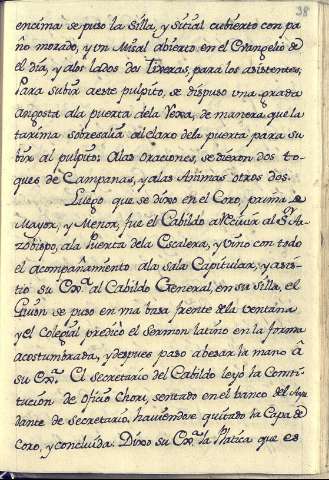 38
encima se puso la silla, y sitial cubierto con pa
ño morado, y un Misal abierto en el Evangelio de
el dia, y a los lados dos tixeras, para los asistentes,
Para subir a este pulpito, se dispuso una grada
angosta a la puerta de la Verxa, de manera que la
tarima sobresalia al claro de la puerta para su
bir al pulpito: A las Oraciones, se dieron dos to
ques de Campanas, y a las Animas otros dos.
Luego que se dixo en el Coro, prima de
Mayor, y Menor, fue el Cabildo a recivir al Sr. Ar
zobispo, a la Puerta de la Escalera, y vino con todo
el acompañamiento a la sala Capitular, y asis
tio su Exa. al Cabildo General, en su silla, el
Guion se puso en una basa frente de la ventana
y el Colegial predicó el Sermon latino en la forma
acostumbrada, y despues paso a besar la mano â
su Exa. El Secretario del Cabildo leyò la Consti
tucion de oficio Chori, sentado en el banco del Ayu
dante de Secretario, haviendose quitado la Capa de
Coro, y concluida. Dixo su Exa. la Platica que es